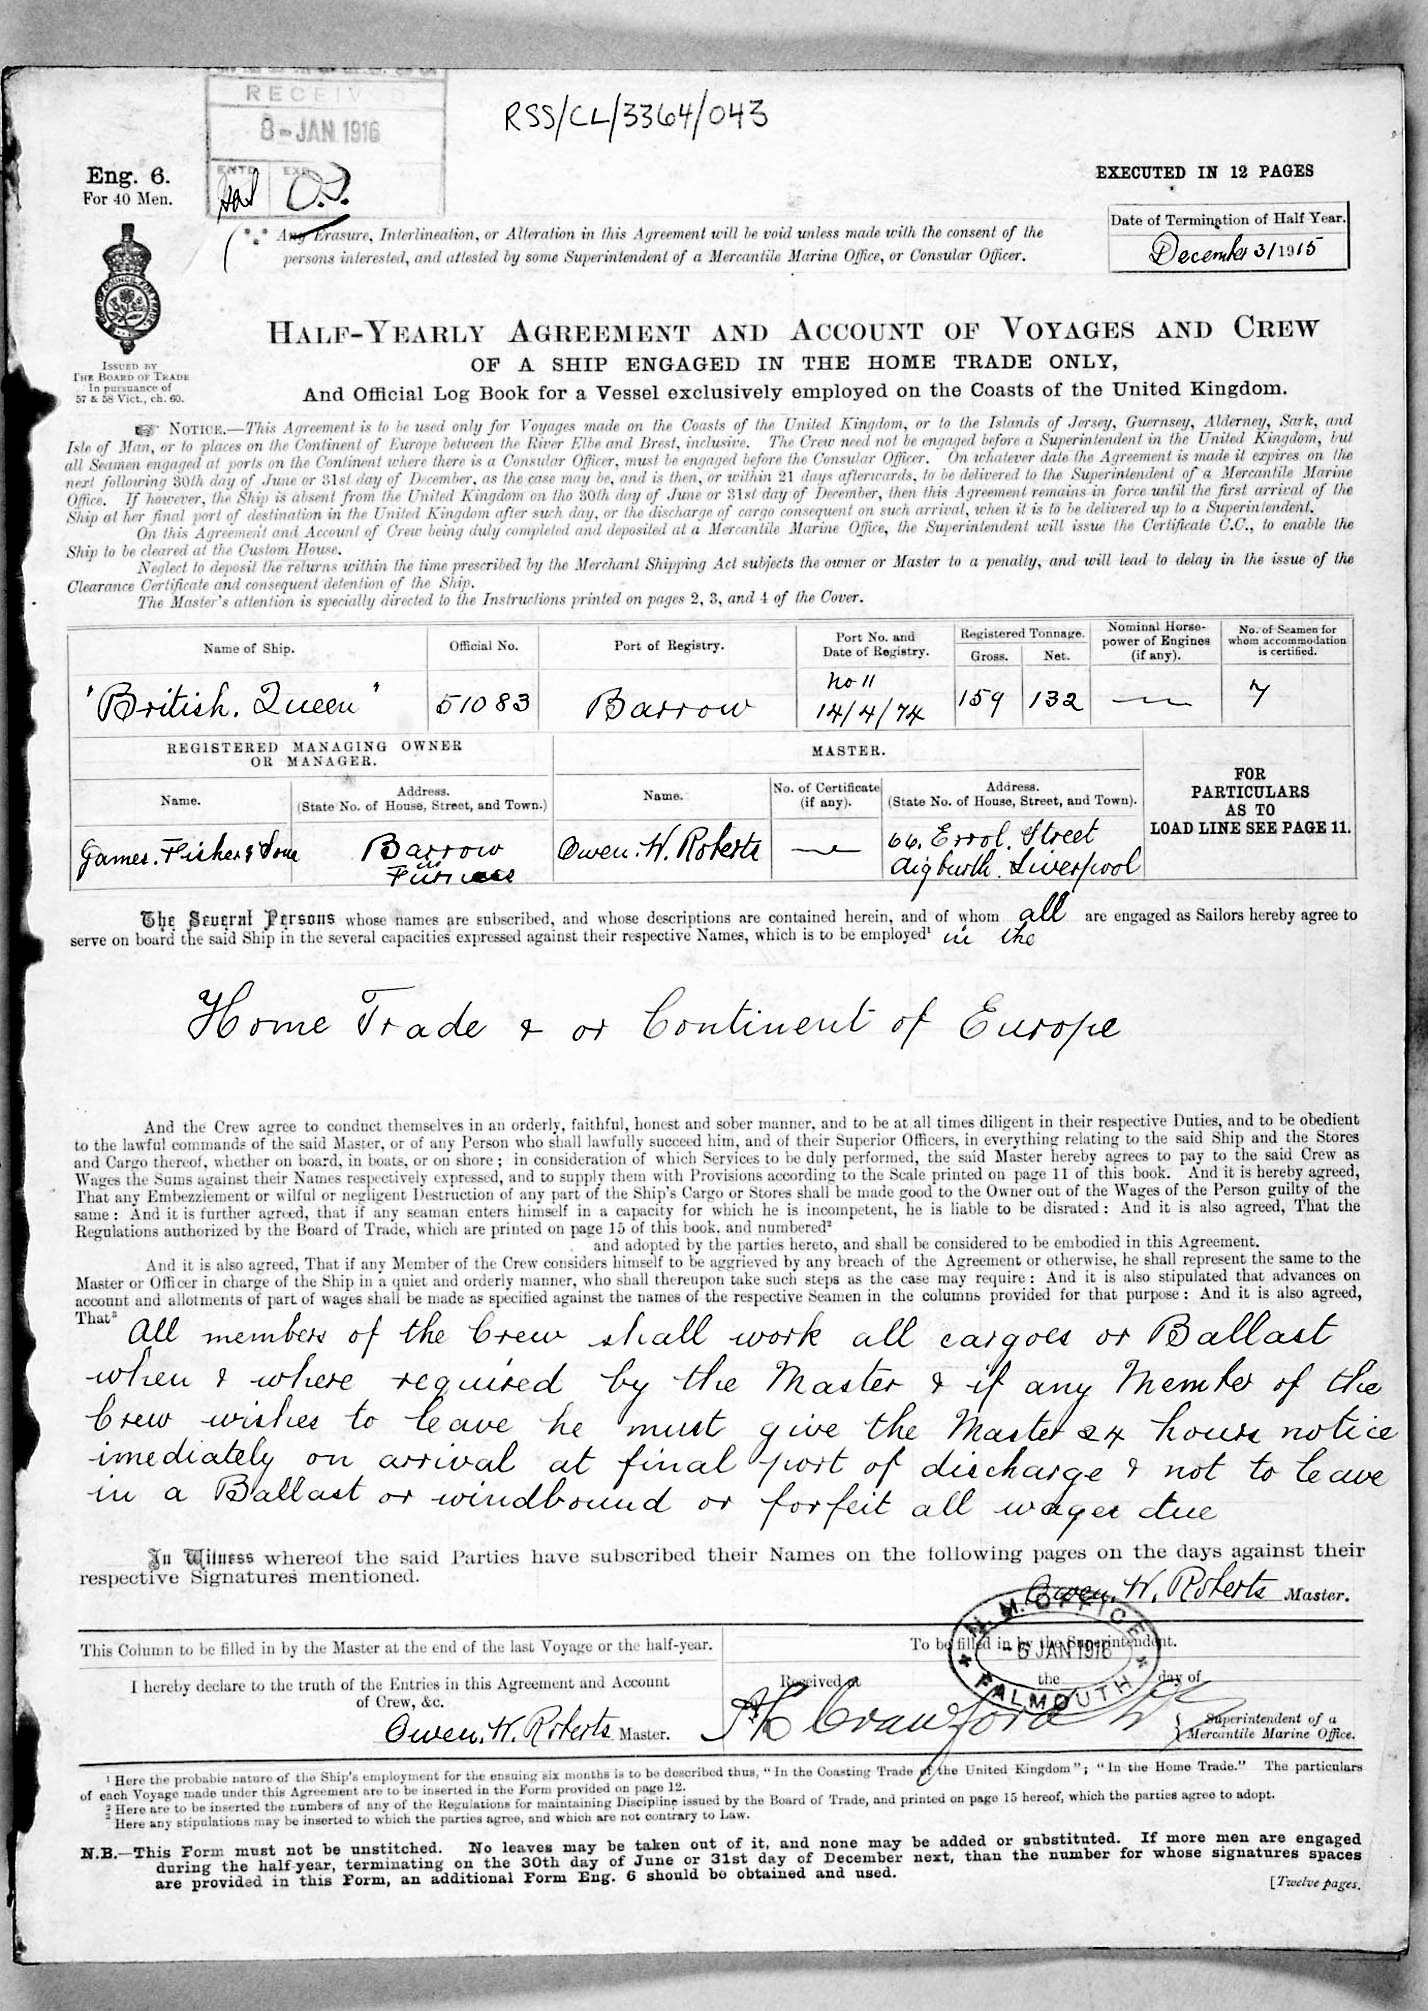 RECEIVED
8-JAN.1916
ENTD EXD
O.S.
RSS/CL/3364/043
Eng. 6.
For 40 Men.
EXECUTED IN 12 PAGES
Date of Termination of Half Year.
December 31 1915
Any Erasure, Interlineation, or Alteration in this Agreement will be void unless made with the consent of the
persons interested, and attested by some Superintendent of a Mercantile Marine Office, or Consular Officer.
ISSUED BY
THE BOARD OF TRADE
In pursuance of
57 & 58 Vict., ch. 60.
HALF-YEARLY AGREEMENT AND ACCOUNT OF VOYAGES AND CREW
OF A SHIP ENGAGED IN THE HOME TRADE ONLY,
And Official Log Book for a Vessel exclusively employed on the Coasts of the United Kingdom.
NOTICE.—This Agreement is to be used only for Voyages made on the Coasts of the United Kingdom, or to the Islands of Jersey, Guernsey, Alderney, Sark, and
Isle of Man, or to places on the Continent of Europe between the River Elbe and Brest, inclusive. The Crew need not be engaged before a Superintendent in the United Kingdom, but
all Seamen engaged at ports on the Continent where there is a Consular Officer, must be engaged before the Consular Officer. On whatever date the Agreement is made it expires on the
next following 30th day of June or 31st day of December, as the case may be, and is then, or within 21 days afterwards, to be delivered to the Superintendent of a Mercantile Marine
Office. If however, the Ship is absent from the United Kingdom on the 30th day of June or 31st day of December, then this Agreement remains in force until the first arrival of the
Ship at her final port of destination in the United Kingdom after such day, or the discharge of cargo consequent on such arrival, when it is to be delivered up to a Superintendent.
On this Agreement and Account of Crew being duly completed and deposited at a Mercantile Marine Office, the Superintendent will issue the Certificate C.C., to enable the
Ship to be cleared at the Custom House.
Neglect to deposit the returns within the time prescribed by the Merchant Shipping Act subjects the owner or Master to a penalty, and will lead to delay in the issue of the
Clearance Certificate and consequent detention of the Ship.
The Master's attention is specially directed to the Instructions printed on pages 2, 3, and 4 of the Cover.
Name of Ship. Official No. Port of Registry. Port No. and Date of Registry. Registered Tonnage. Gross. Net. Nominal Horse-power of Engines (if any). No. of Seamen for whom accommodation is certified.
"British. Queen" 51083 Barrow No 11 14/4/74 159 132 — 7
REGISTERED MANAGING OWNER OR MANAGER. MASTER.
Name. Address. (State No. of House, Street, and Town.) Name. No. of Certificate (if any). Address. (State No. of House, Street, and Town).
FOR PARTICULARS AS TO LOAD LINE SEE PAGE 11.
James. Fisher & Sons Barrow in Furness Owen. W. Roberts — 66. Errol. Street Aigburth. Liverpool
The Several Persons whose names are subscribed, and whose descriptions are contained herein, and of whom all are engaged as Sailors hereby agree to
serve on board the said Ship in the several capacities expressed against their respective Names, which is to be employed¹ in the
Home Trade & or Continent of Europe
And the Crew agree to conduct themselves in an orderly, faithful, honest and sober manner, and to be at all times diligent in their respective Duties, and to be obedient
to the lawful commands of the said Master, or of any Person who shall lawfully succeed him, and of their Superior Officers, in everything relating to the said Ship and the Stores
and Cargo thereof, whether on board, in boats, or on shore; in consideration of which Services to be duly performed, the said Master hereby agrees to pay to the said Crew as
Wages the Sums against their Names respectively expressed, and to supply them with Provisions according to the Scale printed on page 11 of this book. And it is hereby agreed,
That any Embezzlement or wilful or negligent Destruction of any part of the Ship's Cargo or Stores shall be made good to the Owner out of the Wages of the Person guilty of the
same: And it is further agreed, that if any seaman enters himself in a capacity for which he is incompetent, he is liable to be disrated: And it is also agreed, That the
Regulations authorized by the Board of Trade, which are printed on page 15 of this book. and numbered²
and adopted by the parties hereto, and shall be considered to be embodied in this Agreement.
And it is also agreed, That if any Member of the Crew considers himself to be aggrieved by any breach of the Agreement or otherwise, he shall represent the same to the
Master or Officer in charge of the Ship in a quiet and orderly manner, who shall thereupon take such steps as the case may require: And it is also stipulated that advances on
account and allotments of part of wages shall be made as specified against the names of the respective Seamen in the columns provided for that purpose: And it is also agreed,
That³ All members of the Crew shall work all cargoes or Ballast
when & where required by the Master & if any Member of the
Crew wishes to leave he must give the Master 24 hours notice
imediately on arrival at final port of discharge & not to leave
in a Ballast or windbound or forfeit all wages due
In Witness whereof the said Parties have subscribed their Names on the following pages on the days against their
respective Signatures mentioned.
Owen. W. Roberts Master.
M. M. OFFICE
-6 JAN 1916
FALMOUTH
This Column to be filled in by the Master at the end of the last Voyage or the half-year.
I hereby declare to the truth of the Entries in this Agreement and Account
of Crew, &c.
Owen. W. Roberts Master.
To be filled in by the Superintendent.
Received at the day of
Crawford
Superintendent of a
Mercantile Marine Office.
¹ Here the probable nature of the Ship's employment for the ensuing six months is to be described thus, "In the Coasting Trade of the United Kingdom"; "In the Home Trade." The particulars
of each Voyage made under this Agreement are to be inserted in the Form provided on page 12.
² Here are to be inserted the numbers of any of the Regulations for maintaining Discipline issued by the Board of Trade, and printed on page 15 hereof, which the parties agree to adopt.
³ Here any stipulations may be inserted to which the parties agree, and which are not contrary to Law.
N.B.—This Form must not be unstitched. No leaves may be taken out of it, and none may be added or substituted. If more men are engaged
during the half-year, terminating on the 30th day of June or 31st day of December next, than the number for whose signatures spaces
are provided in this Form, an additional Form Eng. 6 should be obtained and used.
[Twelve pages.